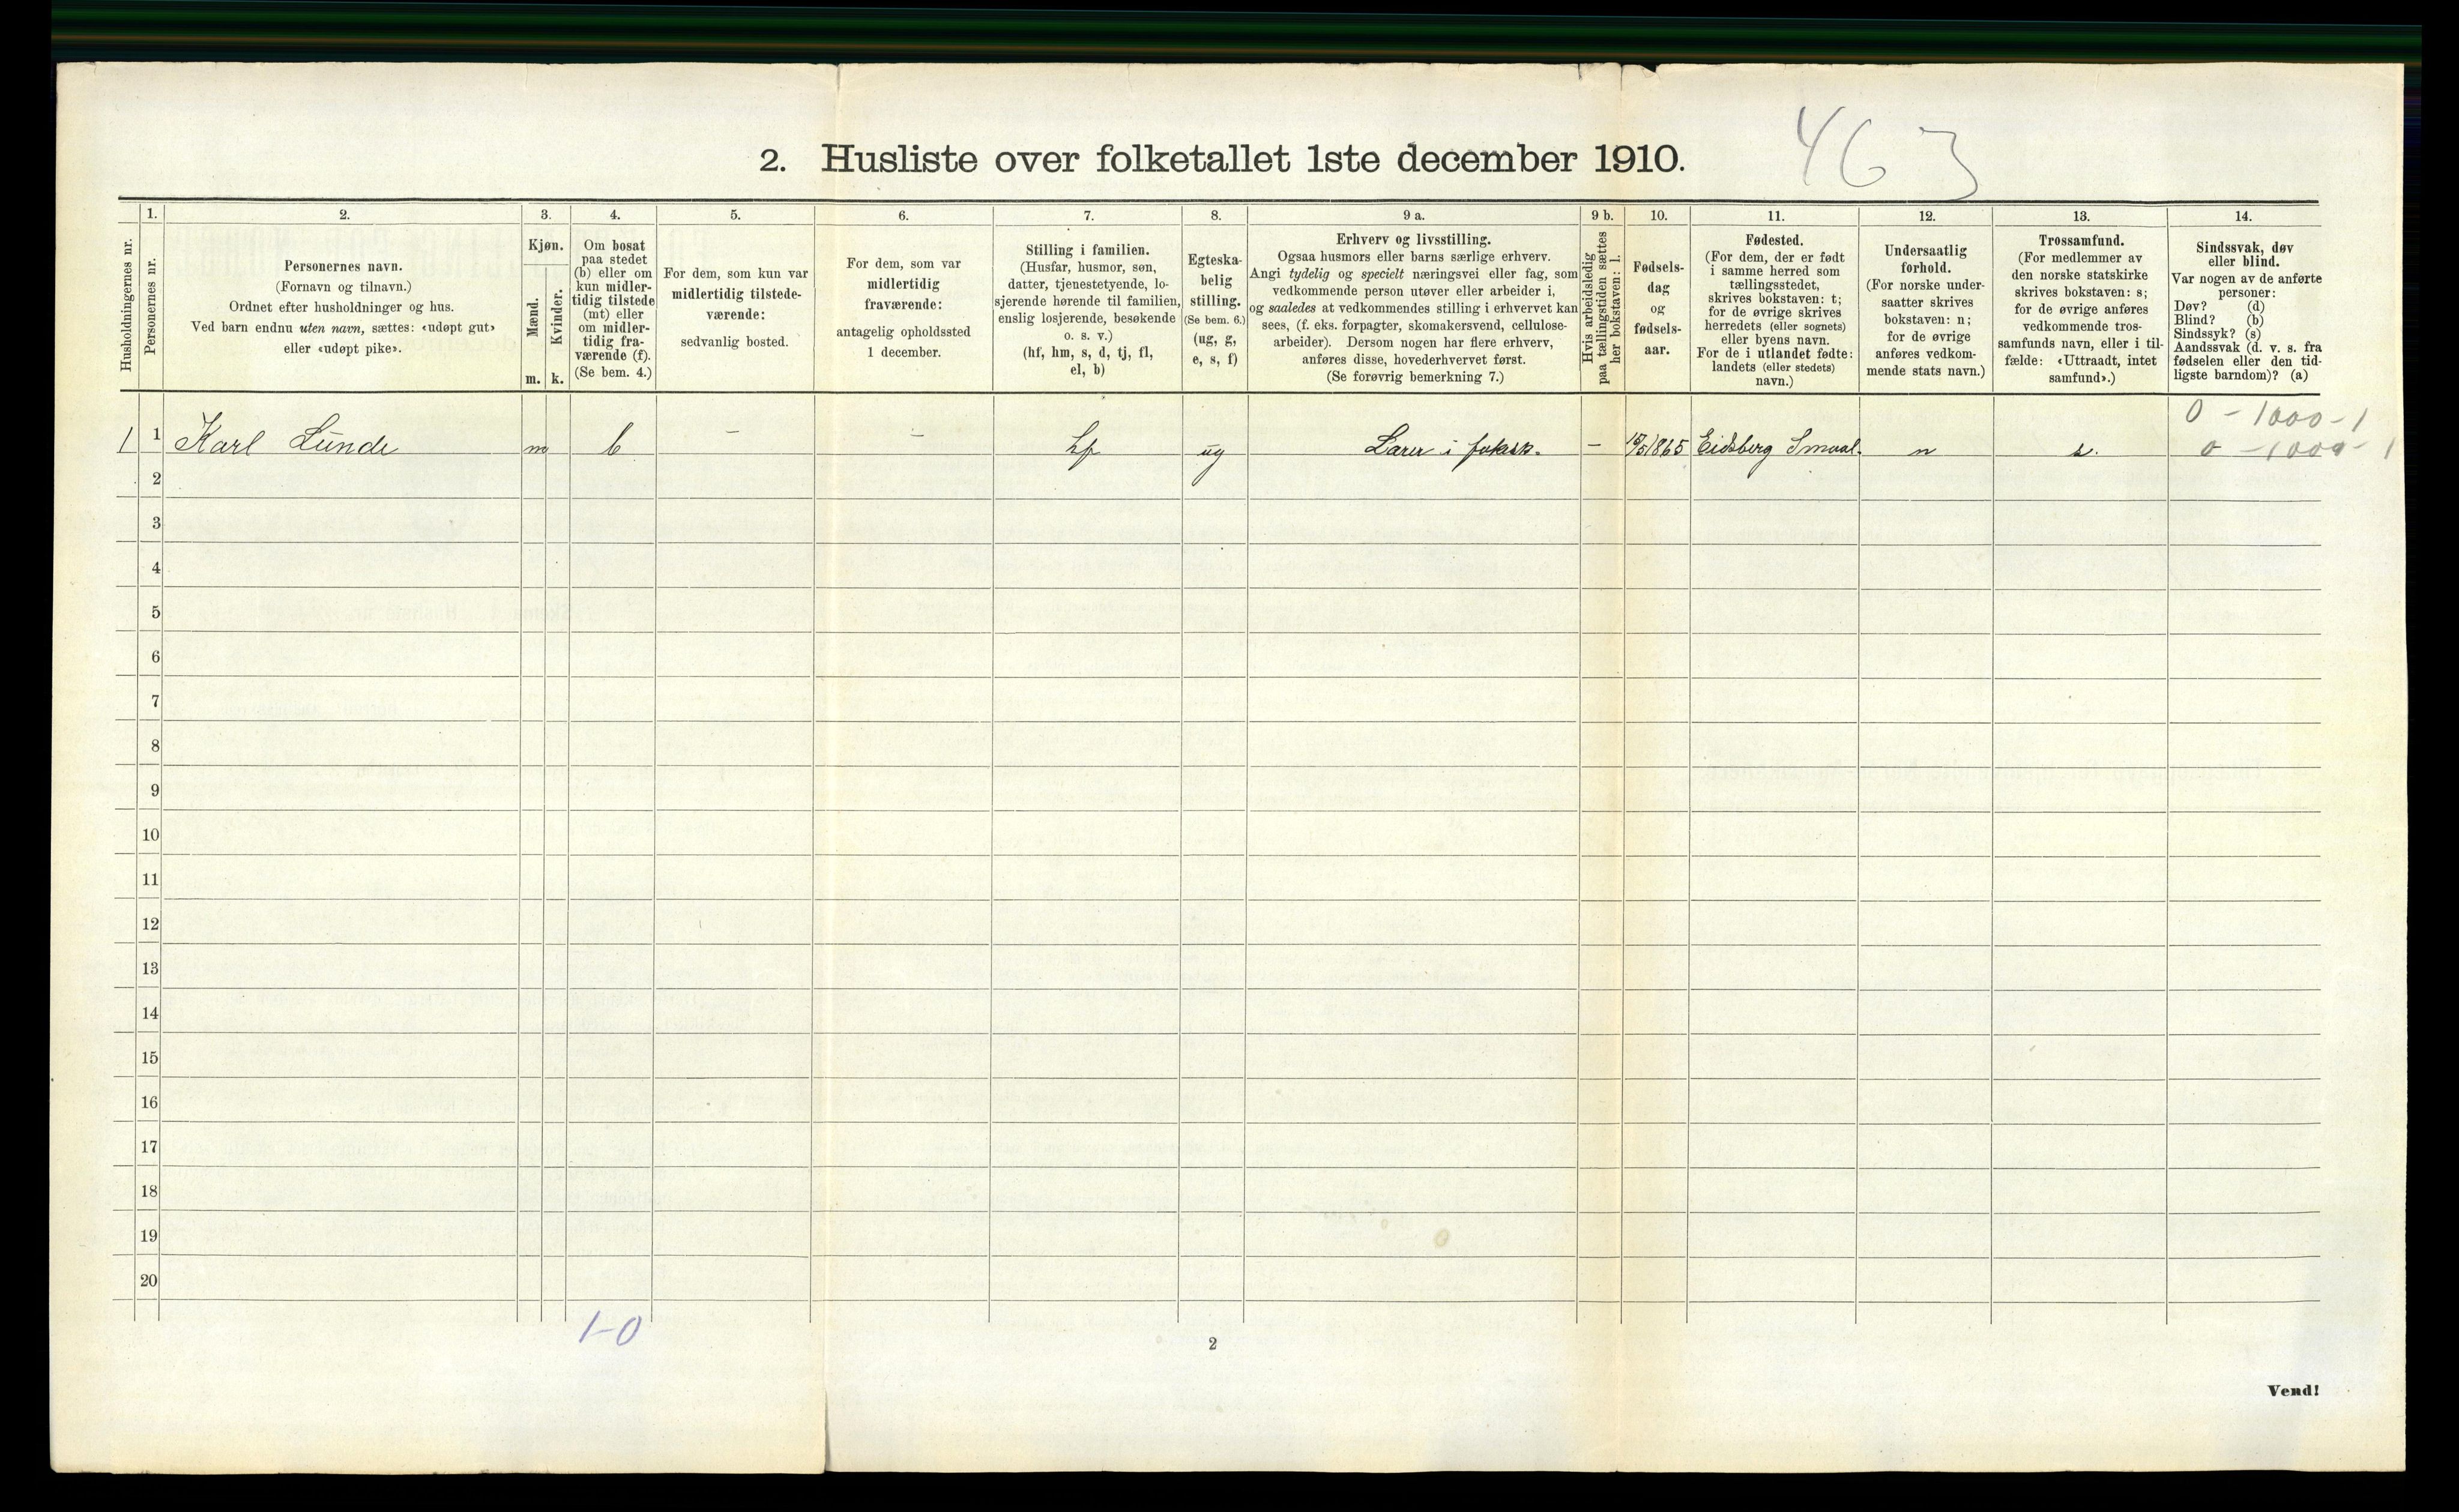 463
2. Husliste over folketallet 1ste december 1910.
Husholdningernes nr.
1.
Personernes nr.
2.
Personernes navn.
(Fornavn og tilnavn.)
Ordnet efter husholdninger og hus.
Ved barn endnu uten navn, sættes: «udøpt gut»
eller «udøpt pike».
3.
Kjøn.
Mænd.
Kvinder.
m. k.
4.
Om bosat
paa stedet
(b) eller om
kun midler-
tidig tilstede
(mt) eller
om midler-
tidig fra-
værende (f).
(Se bem. 4.)
5.
For dem, som kun var
midlertidig tilstede-
værende:
sedvanlig bosted.
6.
For dem, som var
midlertidig
fraværende:
antagelig opholdssted
1 december.
7.
Stilling i familien.
(Husfar, husmor, søn,
datter, tjenestetyende, lo-
sjerende hørende til familien,
enslig losjerende, besøkende
o. s. v.)
(hf, hm, s, d, tj, fl,
el, b)
8.
Egteska-
belig
stilling.
(Se bem. 6.)
(ug, g,
e, s, f)
9 a.
Erhverv og livsstilling.
Ogsaa husmors eller barns særlige erhverv.
Angi tydelig og specielt næringsvei eller fag, som
vedkommende person utøver eller arbeider i,
og saaledes at vedkommendes stilling i erhvervet kan
sees, (f. eks. forpagter, skomakersvend, cellulose-
arbeider). Dersom nogen har flere erhverv,
anføres disse, hovederhvervet først.
(Se forøvrig bemerkning 7.)
9 b.
Hvis arbeidsledig
paa tællingstiden sættes
her bokstaven: l.
10.
Fødsels-
dag
og
fødsels-
aar.
11.
Fødested.
(For dem, der er født
i samme herred som
tællingsstedet,
skrives bokstaven: t;
for de øvrige skrives
herredets (eller sognets)
eller byens navn.
For de i utlandet fødte:
landets (eller stedets)
navn.)
12.
Undersaatlig
forhold.
(For norske under-
saatter skrives
bokstaven: n;
for de øvrige
anføres vedkom-
mende stats navn.)
13.
Trossamfund.
(For medlemmer av
den norske statskirke
skrives bokstaven: s;
for de øvrige anføres
vedkommende tros-
samfunds navn, eller i til-
fælde: «Uttraadt, intet
samfund».)
14.
Sindssvak, døv
eller blind.
Var nogen av de anførte
personer:
Døv? (d)
Blind? (b)
Sindssyk? (s)
Aandssvak (d. v. s. fra
fødselen eller den tid-
ligste barndom)? (a)
0 - 1000 - 1
1 1 Karl Lunde m b - - hf ug Lærer i folksk. - 1865 Eidsberg Smaal. n s. 0 - 1000 - 1
2
3
4
5
6
7
8
9
10
11
12
13
14
15
16
17
18
19
20
1-0
2
Vend!